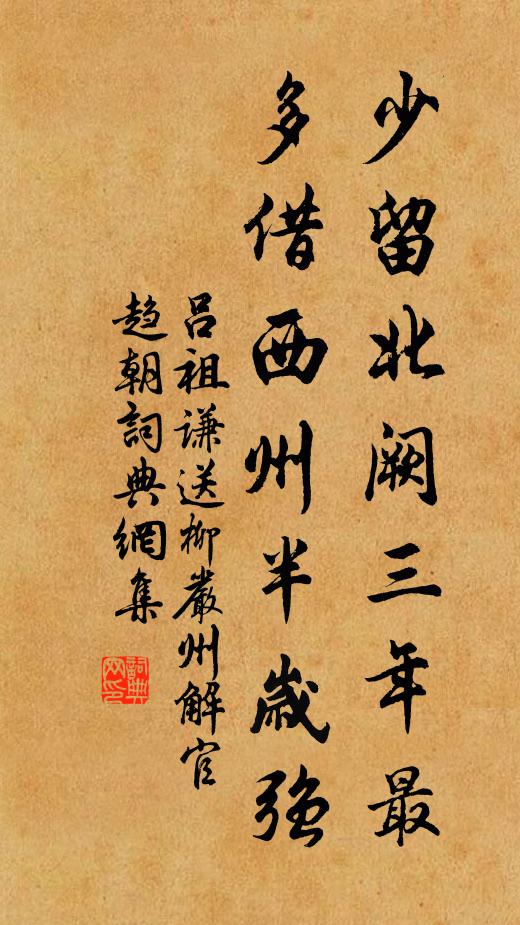 少留北阙三年最
多借西州半岁强
吕祖谦送柳严州解官
趋朝词典网集
词典网印